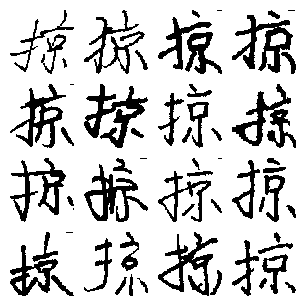 掠掠掠掠
掠掠掠掠
掠掠掠掠
掠掠掠掠